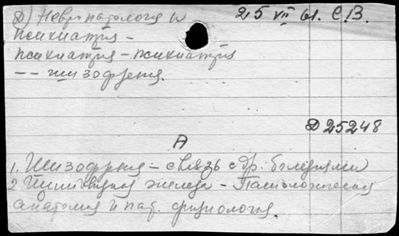 Д) Невропатология и 25 VII 61. С.В.
психиатрия -
психиатрия - психиатрия
-- шизофрения.
Д 25248
А
1. Шизофрения - связь с др. болезнями
2 Щитовидная железа - Патологическая
анатомия и пат. физиология.